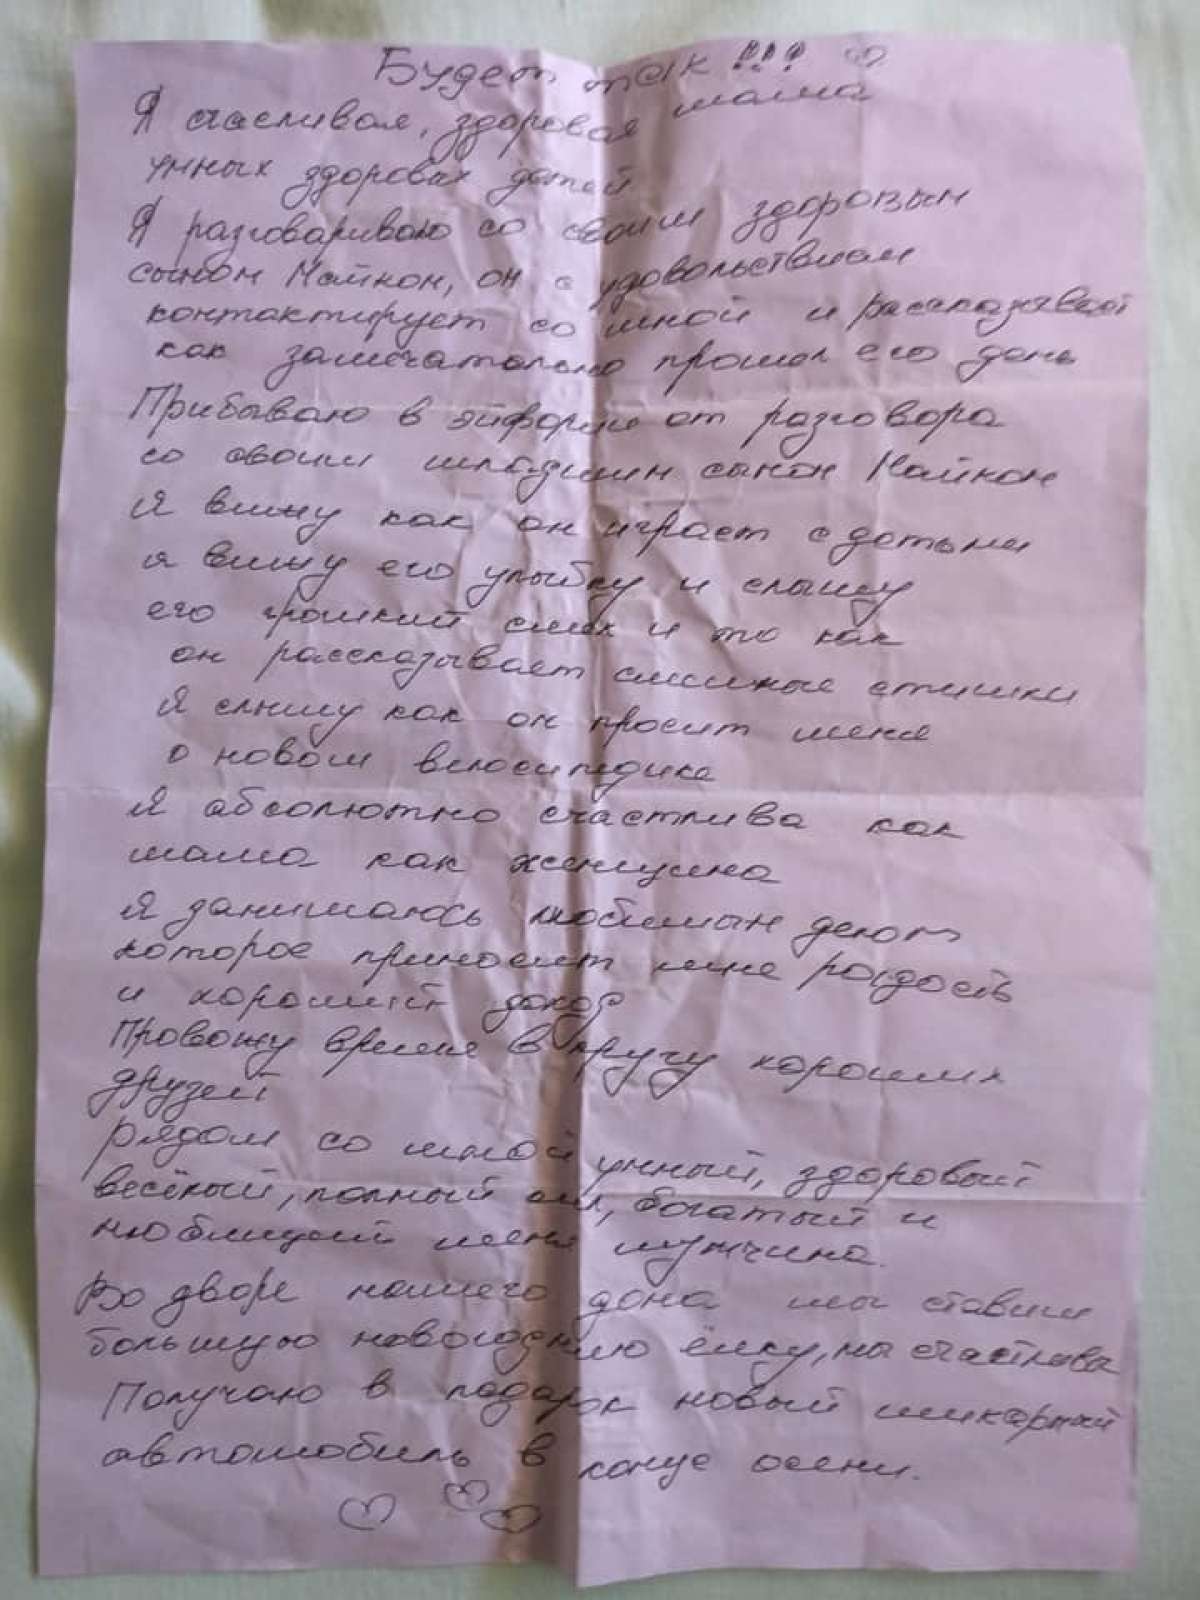 Будет так!!!
Я счасливая, здоровая мама
умных здоровых детей
Я разговариваю со своим здоровым
сыном Майком, он с удовольствием
контактирует со мной и рассказывает
как замечательно прошол его день
Прибываю в эйфории от разговора
со своим младшим сыном Майком
Я вижу как он играет с детьми
я вижу его улыбку и слышу
его громкий смех и то как
он рассказывает смешные стишки
Я слышу как он просит меня
о новом велосипедике
Я абсолютно счастлива как
мама как женщина
Я занимаюсь любимым делом
которое приносит мне радость
и хороший доход
Провожу время в кругу хороших
друзей
рядом со мной умный, здоровый
весёлый, полный сил, богатый и
любящий меня мужчина.
Во дворе нашего дома мы ставим
большую новогоднюю ёлку, мы счастливы
Получаю в подарок новый шикарный
автомобиль в конце осени.